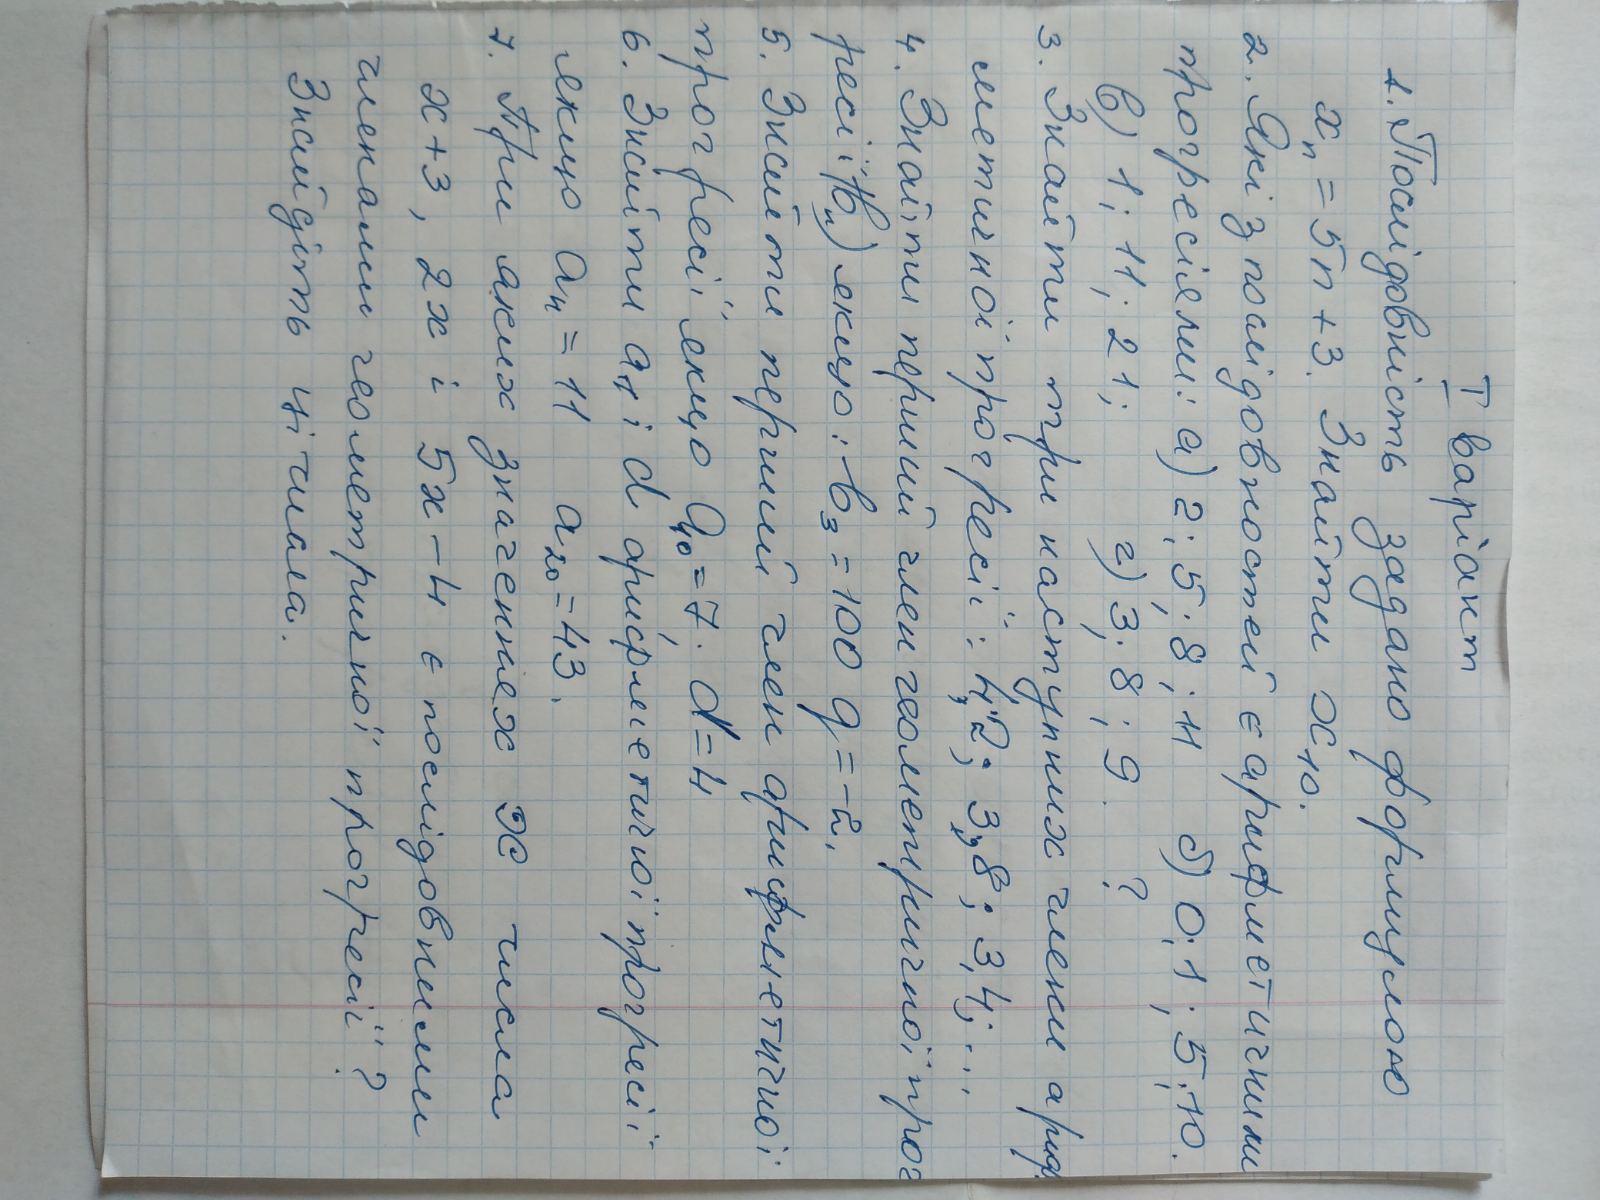 I варіант
1. Послідовність задано формулою
xn = 5n + 3. Знайти x10.
2. Які з послідовностей є арифметичними
прогресіями: а) 2; 5; 8; 11 б) 0; 1; 5; 10.
в) 1; 11; 21; г) 3; 8; 9. ?
3. Знайти три наступних члени ариф
метичної прогресії: 4,2; 3,8; 3,4; ...
4. Знайти перший член геометричної прог
ресії (bn) якщо: b3 = 100 q = -2.
5. Знайти перший член арифметичної
прогресії, якщо a10 = 7. d = 4
6. Знайти a1 і d арифметичної прогресії
якщо a4 = 11 a20 = 43.
7. При яких значеннях x числа
x+3, 2x і 5x-4 є послідовними
членами геометричної прогресії?
Знайдіть ці числа.